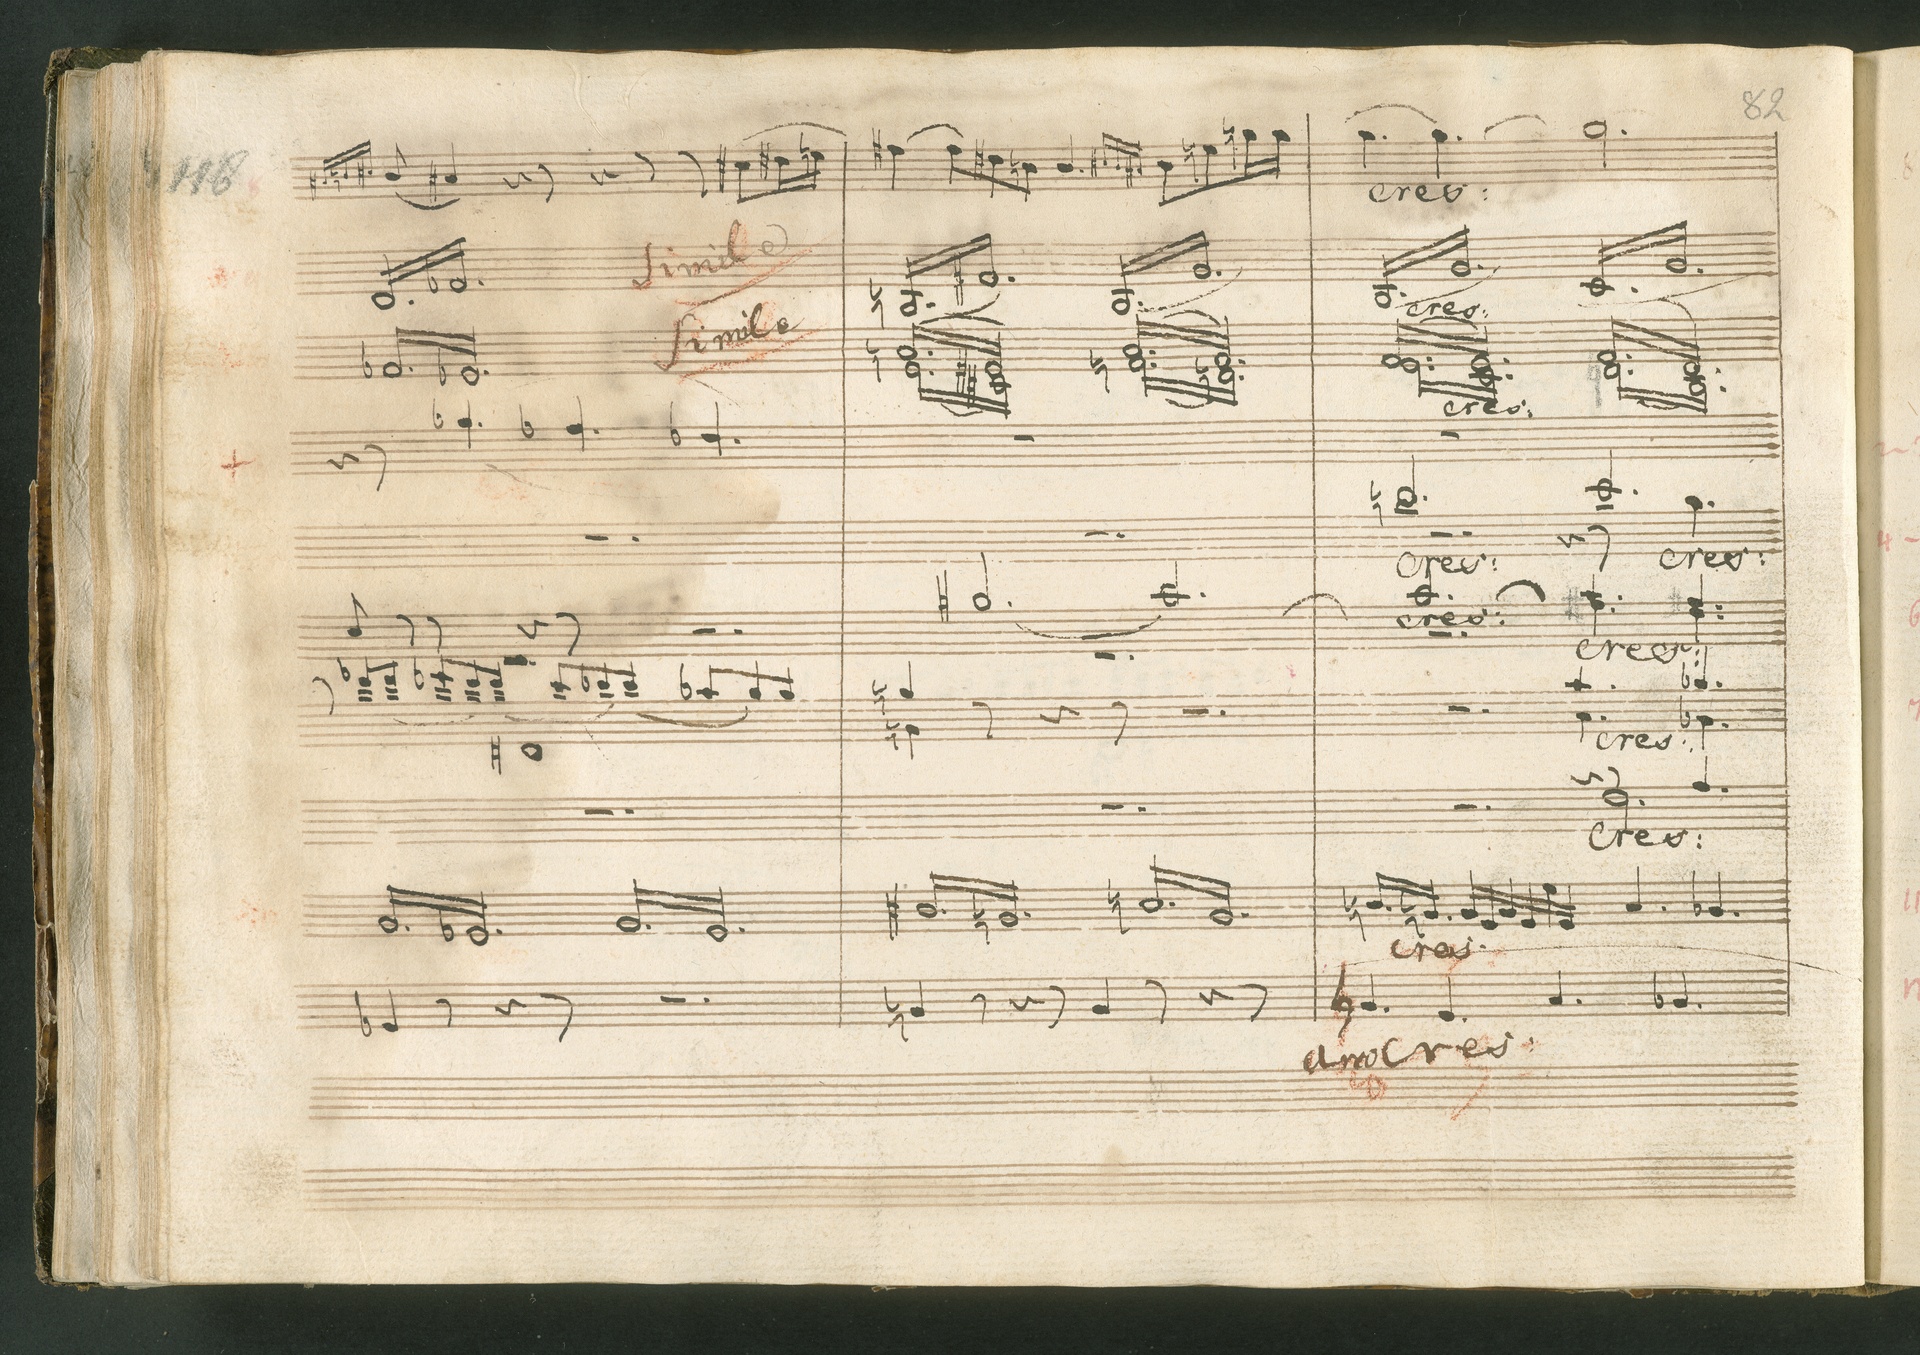 82
118
cres:
Simile
Simile
cres:
cres:
cres: cres:
cres:
cres:
cres:
cres:
cres:
cres: